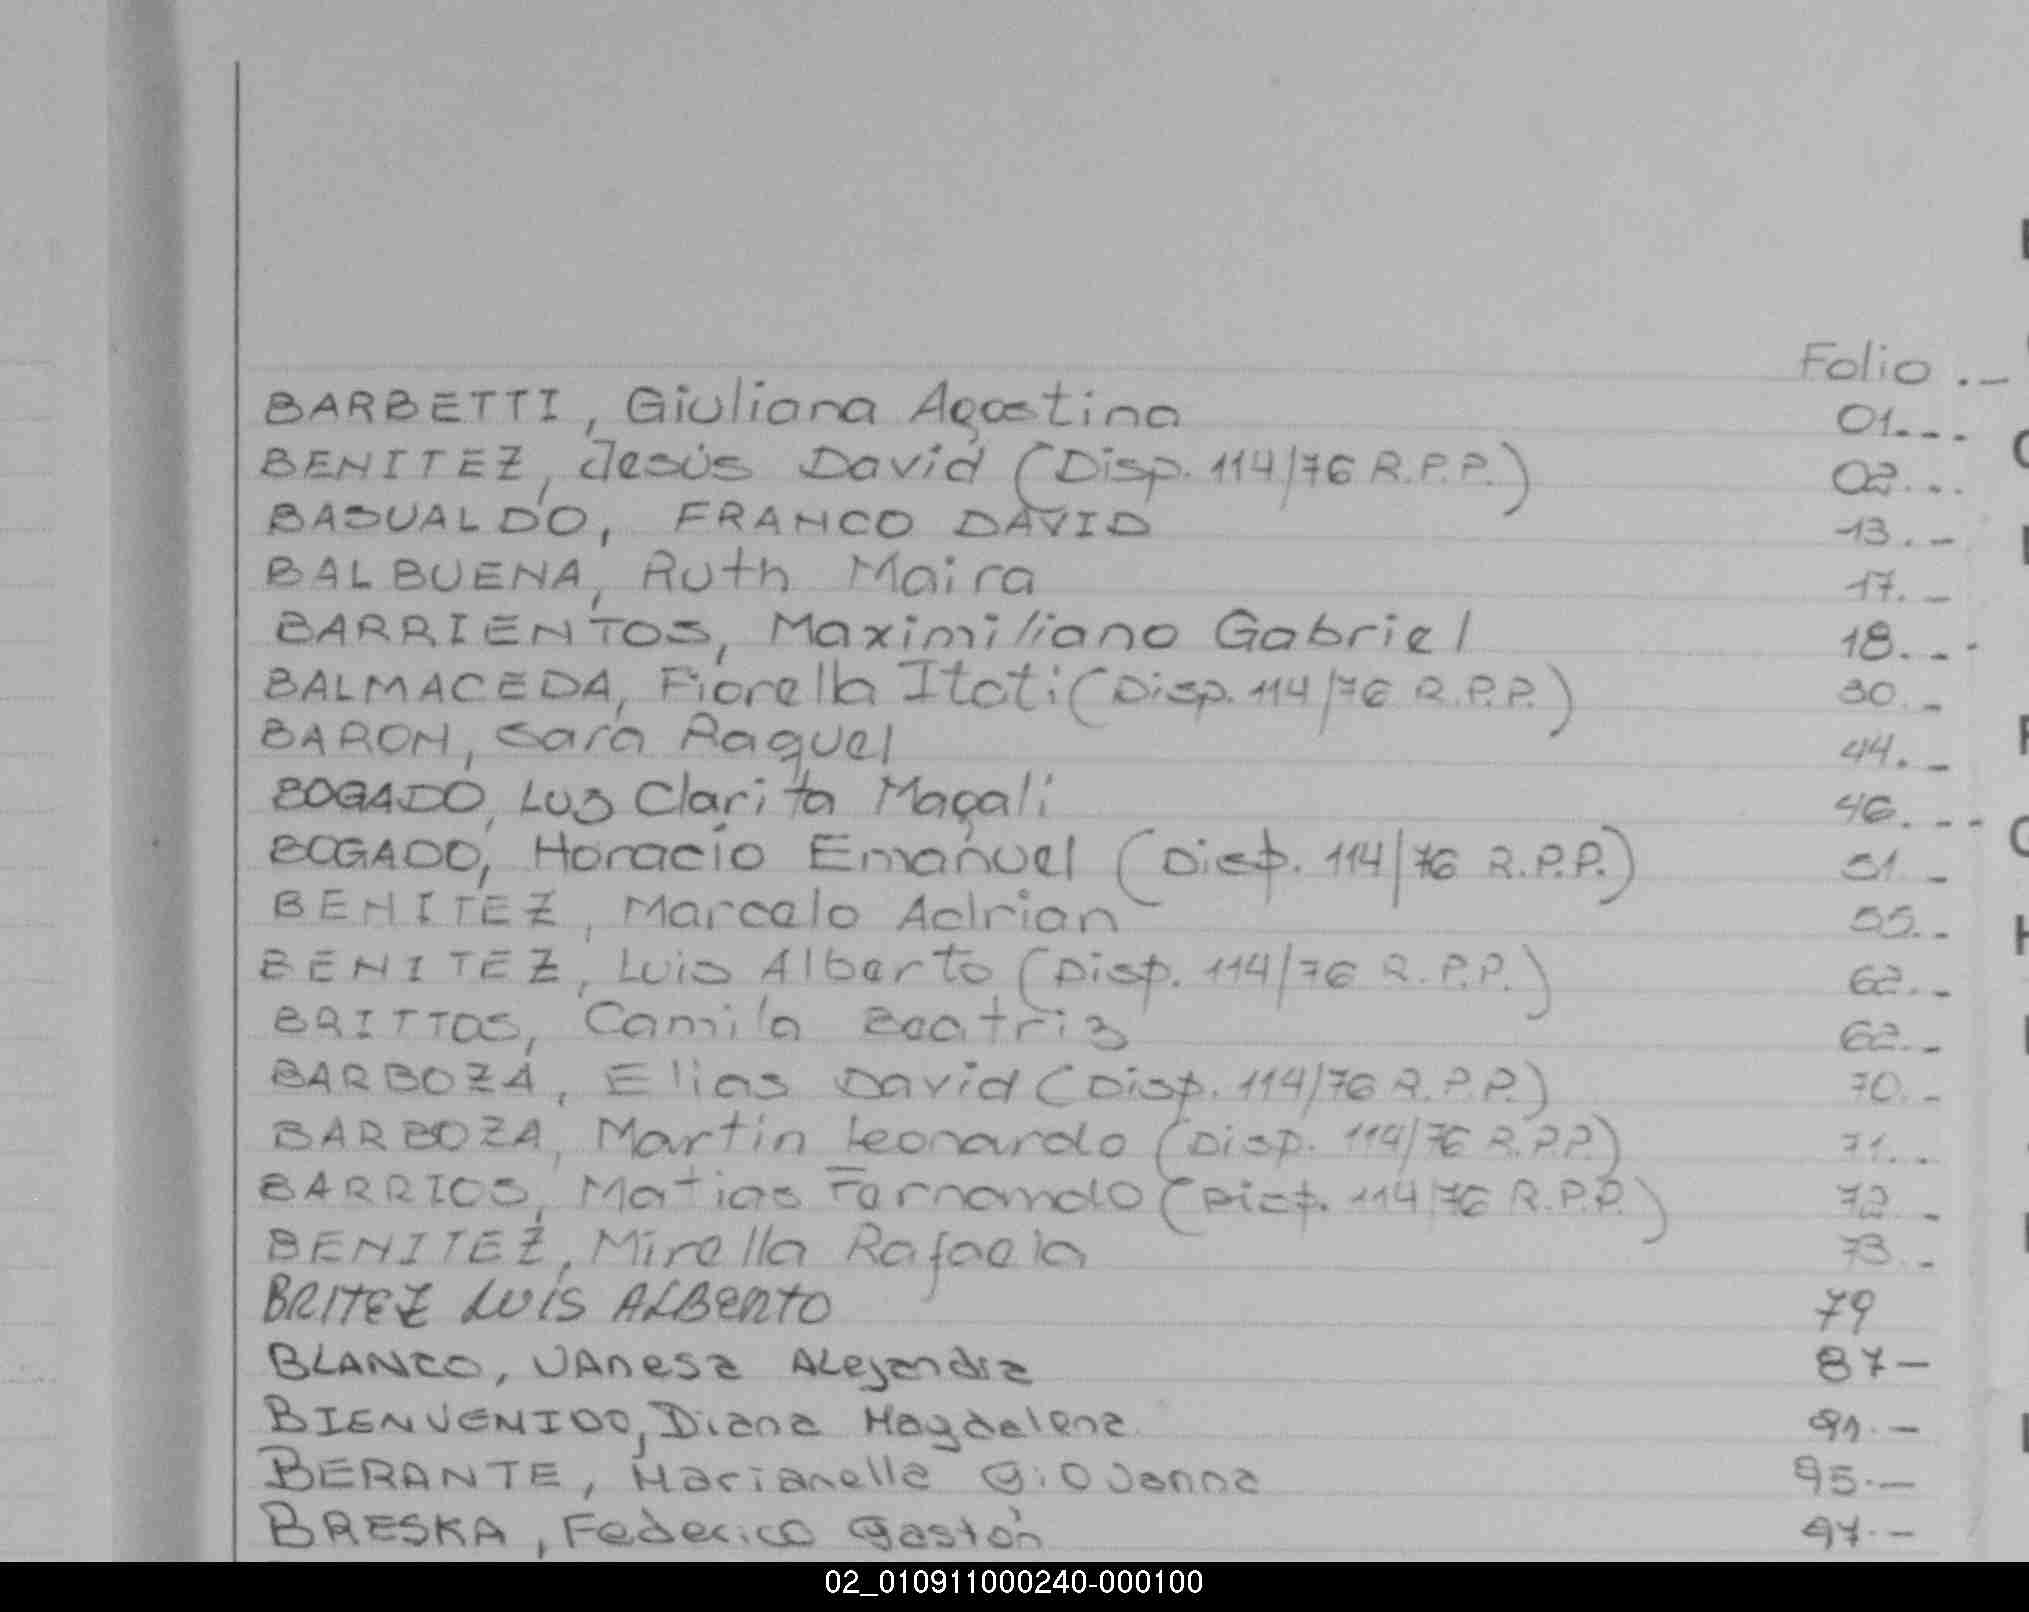 Folio .-
BARBETTI, Giuliana Agostina 01.---
BENITEZ, Jesús David (Disp. 114/76 R.P.P.) 02...
BASUALDO, FRANCO DAVID 13.-
BALBUENA, Ruth Maira 17.-
BARRIENTOS, Maximiliano Gabriel 18.--
BALMACEDA, Fiorella Itati (Disp. 114/76 R.P.P.) 30.-
BARON, Sara Raquel 44.-
BOGADO, Luz Clarita Magali 46.---
BOGADO, Horacio Emanuel (Disp. 114/76 R.P.P.) 51.-
BENITEZ, Marcelo Adrian 55.-
BENITEZ, Luis Alberto (Disp. 114/76 R.P.P.) 62.-
BRITTOS, Camila Beatriz 62.-
BARBOZA, Elias David (Disp. 114/76 R.P.P.) 70.-
BARBOZA, Martin Leonardo (Disp. 114/76 R.P.P.) 71..
BARRIOS, Matias Fernando (Disp. 114/76 R.P.P.) 72.-
BENITEZ, Mirella Rafaela 73.-
BRITEZ LUIS ALBERTO 79
BLANCO, VAnesa ALejandra 87-
BIENVENIDO, Diana Magdalena 91.-
BERANTE, Marianella Giovanna 95.-
BRESKA, Federico Gastón 97.-
02_010911000240-000100